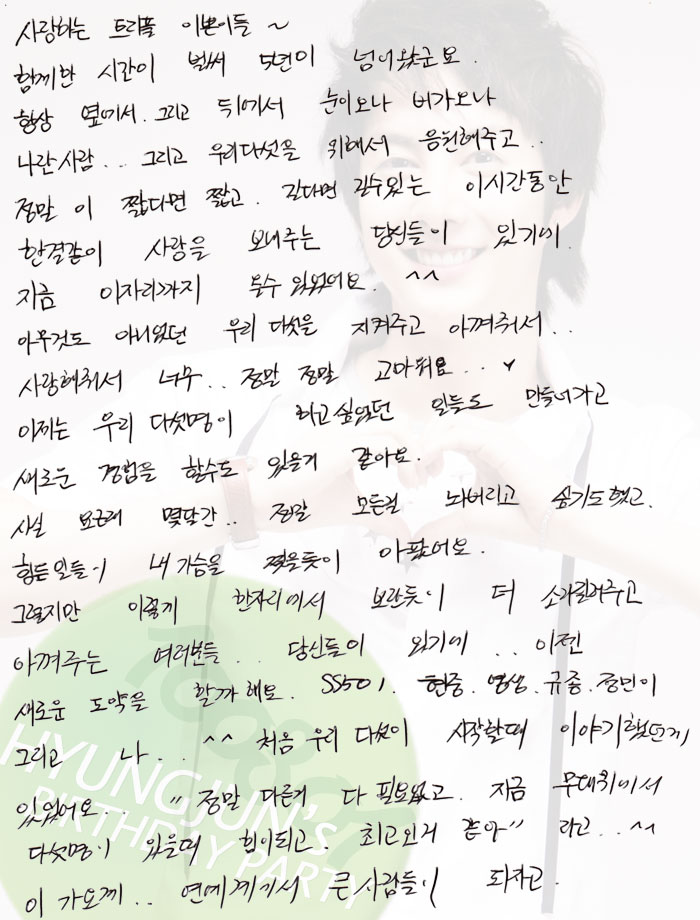 사랑하는 트리플 이쁜이들 ~
함께한 시간이 벌써 5년이 넘어왔군요.
항상 옆에서. 그리고 뒤에서 눈이오나 비가오나
나란사람.. 그리고 우리다섯을 위해서 응원해주고..
정말 이 짧다면 짧고. 길다면 길수있는 이시간동안
한결같이 사랑을 보내주는 당신들이 있기에
지금 이자리까지 올수 있었어요. ^^
아무것도 아니었던 우리 다섯을 지켜주고 아껴줘서..
사랑해줘서 너무.. 정말 정말 고마워요..♥
이제는 우리 다섯명이 하고싶었던 일들도 만들어가고
새로운 경험을 할수도 있을거 같아요.
사실 요근래 몇달간.. 정말 모든걸 놔버리고 싶기도했고.
힘든일들이 내가슴을 찢을듯이 아팠어요.
그렇지만 이렇게 한자리에서 보란듯이 더 소리질러주고
아껴주는 여러분들.. 당신들이 있기에.. 이젠
새로운 도약을 할까해요. SS501. 현중. 영생. 규종. 정민이
그리고 나.. ^^ 처음 우리 다섯이 시작할때 이야기했던게
있었어요.. "정말 다른거 다 필요없고. 지금 무대위에서
다섯명이 있을때 힘이되고. 최고인거 같아" 라고.. ^^
이 가요계.. 연예계에서 큰사람들이 되자고.
HYUNGJUN'S
BIRTHDAY PARTY